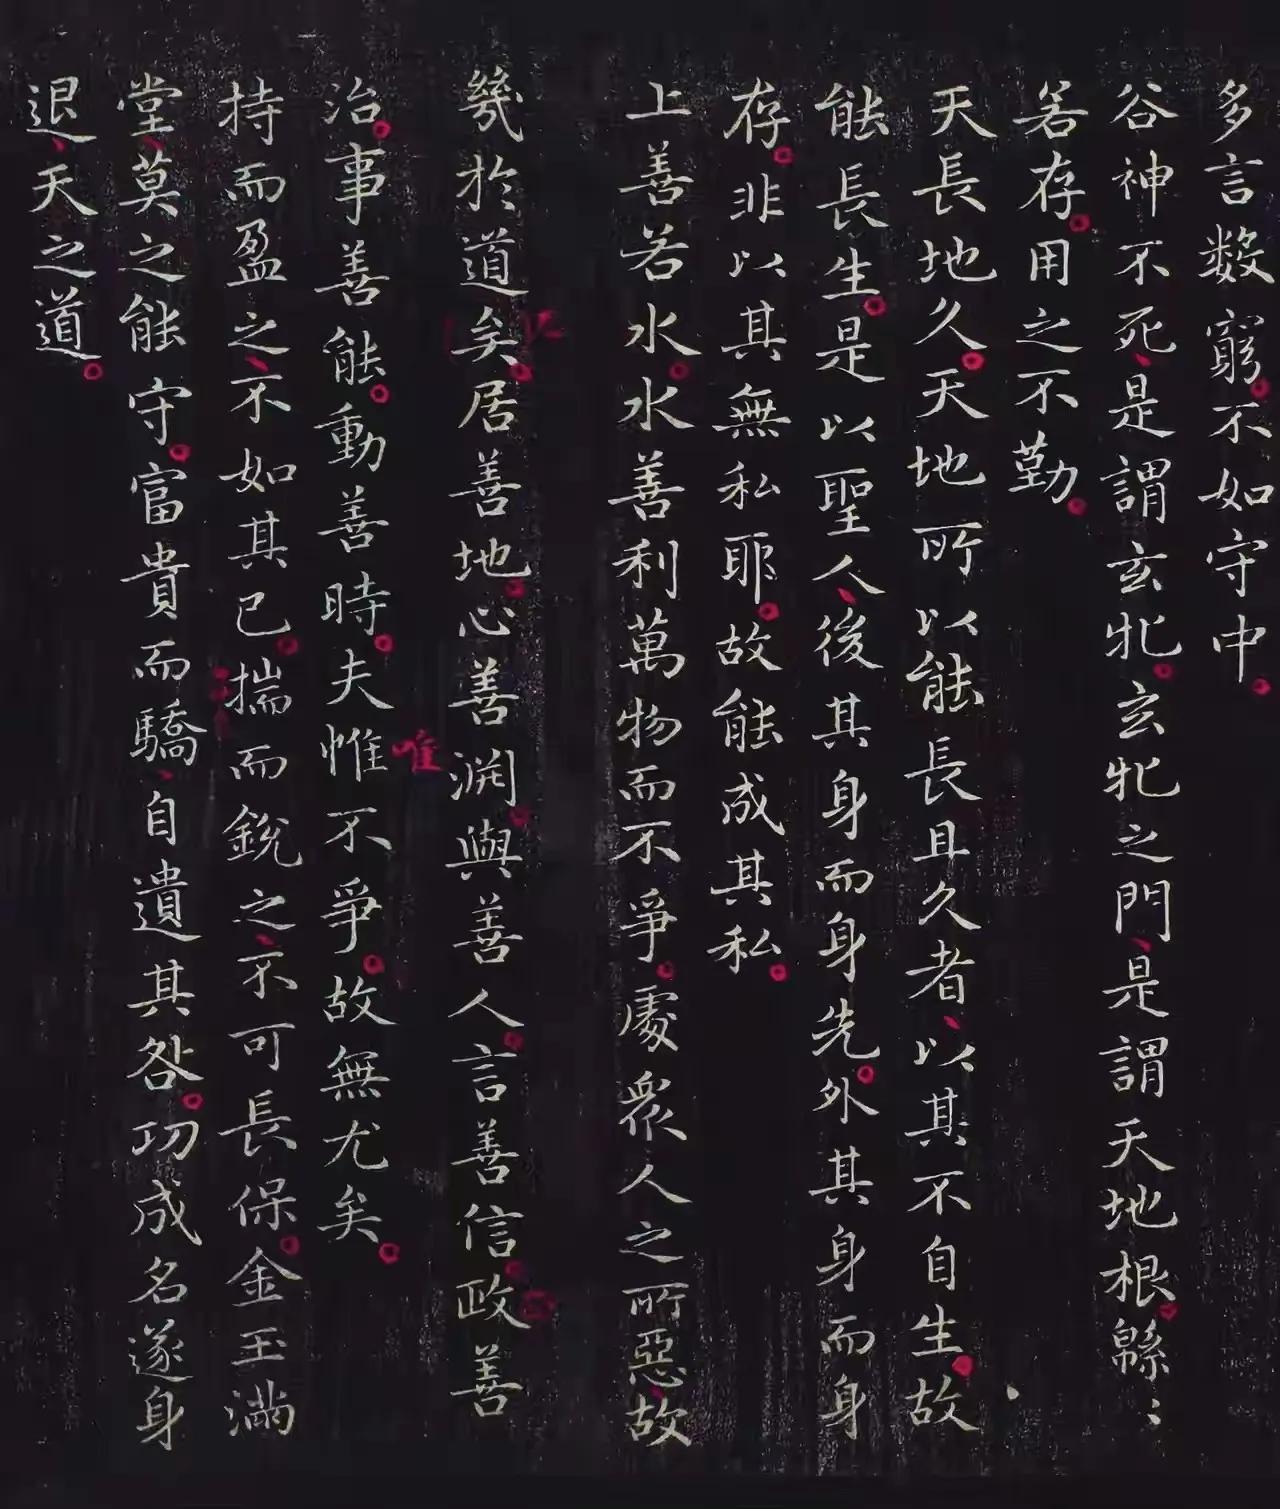 多言數窮不如守中
谷神不死是謂玄牝玄牝之門是謂天地根緜〻
若存用之不勤
天長地久天地所以能長且久者以其不自生故
能長生是以聖人後其身而身先外其身而身
存非以其無私耶故能成其私
上善若水水善利萬物而不爭處衆人之所惡故
幾於道矣居善地心善淵與善人言善信政善
治事善能動善時夫惟不爭故無尤矣
唯
持而盈之不如其已揣而銳之不可長保金玉滿
堂莫之能守富貴而驕自遺其咎功成名遂身
退天之道